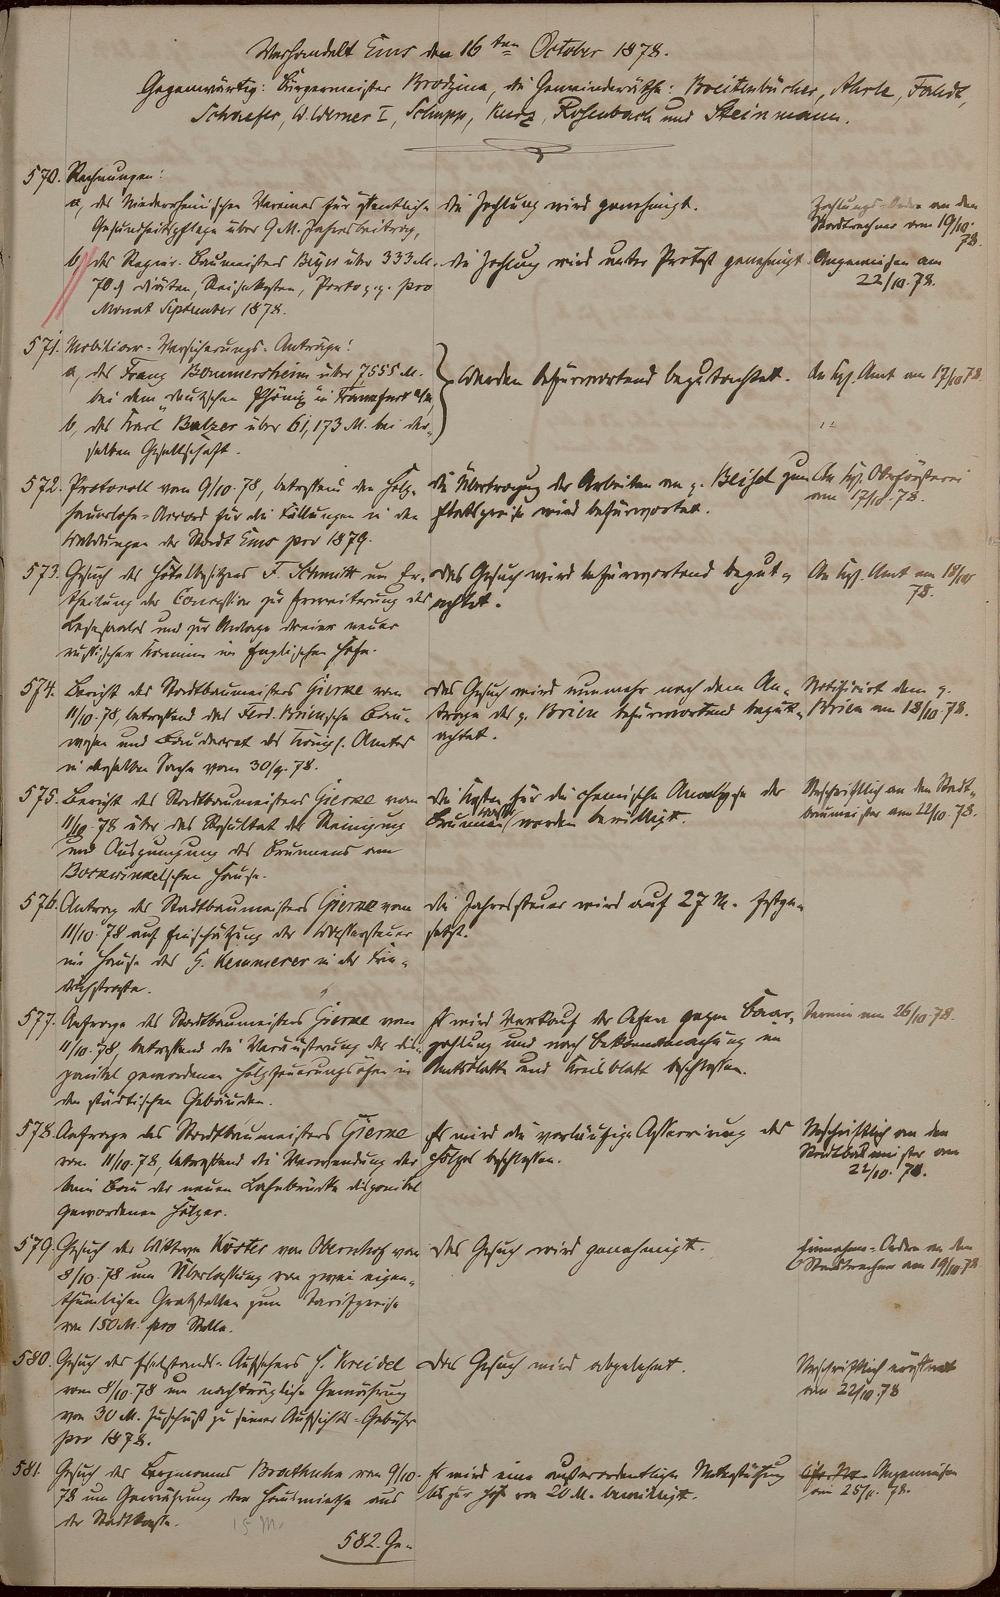 Verhandelt Ems den 16ten October 1878.
Gegenwärtig: Bürgermeister Brodzina, die Gemeinderäthe: Breitenbücher, Ahrle, Faldt,
Schaefer, W. Werner I, Schupp, Kurz, Rosenbach und Steinmann.
570. Rechnungen:
a, des Niederrheinischen Vereines für öffentliche
Gesundheitspflege über 9 M. Jahresbeitrag,
die Zahlung wird genehmigt.
Zahlungs-Ordre an den
Stadtrechner am 19/10.
78.
b, des Regier. Baumeisters Beyer über 333 M.
70 ₰ Diäten, Reisekosten, Porto p.p. pro
Monat September 1878.
die Zahlung wird unter Protest genehmigt.
Angewiesen am
22/10. 78.
571. Mobiliar-Versicherungs-Anträge:
a, des Franz Bommersheim über 7,555 M.
bei dem deutschen Phönix in Frankfurt a/m,
b, des Karl Balzer über 61,173 M. bei der-
selben Gesellschaft.
Werden befürwortend begutachtet.
An Kgl. Amt am 17/10 78.
572. Protocoll vom 9/10. 78, betreffend den Holz-
hauerlohn-Accord für die Fällungen in den
Waldungen der Stadt Ems pro 1879.
die Übertragung der Arbeiten an p. Bleisel zum
Etatspreise wird befürwortet.
An Kgl. Oberförsterei
am 17/10. 78.
573. Gesuch des Hôtelbesitzers F. Schmitt um Er-
theilung der Concession zur Erweiterung des
Lesesaales und zur Anlage dreier neuer
russischer Kamine im Englischen Hofe.
das Gesuch wird befürwortend begut-
achtet.
An Kgl. Amt am 18/10
78.
574. Bericht des Stadtbaumeisters Gierke vom
11/10. 78, betreffend das Ferd. Brien'sche Bau-
wesen und Baudecret des Königl. Amtes
in derselben Sache vom 30/9. 78.
das Gesuch wird nunmehr nach dem An-
trage des p. Brien befürwortend begut-
achtet.
Notificirt dem p.
Brien am 18/10. 78.
575. Bericht des Stadtbaumeisters Gierke vom
11/10. 78 über das Resultat der Reinigung
und Auspumpung des Brunnens am
Bockwinkel'schen Hause.
die Kosten für die chemische Analyse des
Brunnenwassers werden bewilligt.
Abschriftlich an den Stadt-
baumeister am 22/10. 78.
576. Antrag des Stadtbaumeisters Gierke vom
11/10. 78 auf Einschätzung der Wassersteuer
im Hause des G. Kemmerer in der Frie-
drichstraße.
die Jahressteuer wird auf 27 M. festge-
setzt.
577. Anfrage des Stadtbaumeisters Gierke vom
11/10. 78, betreffend die Veräußerung der dis-
ponibel gewordenen Holzfeuerungsöfen in
den städtischen Gebäuden.
Es wird Verkauf der Oefen gegen Baar-
zahlung und nach Bekanntmachung im
Amtsblatte und Kreisblatt beschlossen.
Termin am 26/10. 78.
578. Anfrage des Stadtbaumeisters Gierke
vom 11/10. 78, betreffend die Verwendung der
beim Bau der neuen Lahnbrücke disponibel
gewordenen Hölzer.
Es wird die vorläufige Asservirung des
Holzes beschlossen.
Abschriftlich an den
Stadtbaumeister am
22/10. 78.
579. Gesuch der Wittwe Köster von Obernhof vom
8/10. 78 um Überlassung von zwei eigen-
thümlichen Grabstellen zum Tarifpreise
von 150 M. pro Stelle.
das Gesuch wird genehmigt.
Einnahme-Ordre an den
Stadtrechner am 19/10 78.
580. Gesuch des Eselstands-Aufsehers H. Kreidel
vom 8/10. 78 um nachträgliche Gewährung
von 30 M. Zuschuß zu seiner Aufsichts-Gebühr
pro 1878.
das Gesuch wird abgelehnt.
Abschriftlich eröffnet
am 22/10. 78
581. Gesuch des Bergmanns Brathuhn vom 9/10.
78 um Gewährung der Hausmiethe aus
der Stadtkasse.
15 M.
Es wird eine außerordentliche Unterstützung
bis zur Höhe von 20 M. bewilligt.
Angewiesen
am 25/11. 78.
582. Ge-